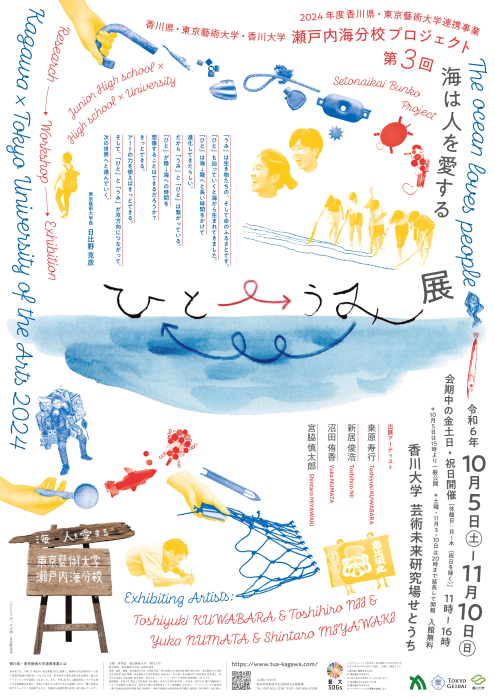 2024年度香川県・東京藝術大学連携事業
香川県・東京藝術大学・香川大学 瀬戸内海分校プロジェクト
第3回
海は人を愛する
展
Setonaikai Bunko
Project
The ocean loves people
Kagawa × Tokyo University of the Arts 2024
Research
Workshop
Exhibition
Junior High school ×
High school × University
「うみ」は生き物たちの、そして命のふるさとです。
「ひと」も辿っていくと海から生まれてきました。
「ひと」は海と陸へと長い時間をかけて
進化してきたらしい。
だから「うみ」と「ひと」は繋がっている。
「ひと」が陸と海への時間を
想像することはできるだろうか?
きっとできる。
アートの力を使えばきっとできる。
そして、「ひと」と「うみ」が双方向につながって、
次の世界へと進んでいく。
東京藝術大学長 日比野 克彦
ひと うみ
令和6年
10月5日(土)–11月10日(日)
会期中の金土日・祝日開催[休館日:月–木(祝日を除く)] 11時–16時
*10月5日は15時より一般公開 *土曜・11月3・10日は20時まで延長して開館・入館無料
香川大学 芸術未来研究場せとうち
出展アーティスト
桒原 寿行 Toshiyuki KUWABARA
新居 俊浩 Toshihiro NII
沼田 侑香 Yuka NUMATA
宮脇 慎太郎 Shintaro MIYAWAKI
海は人を愛する
東京藝術大学
瀬戸内海分校
Exhibiting Artists:
Toshiyuki KUWABARA & Toshihiro NII &
Yuka NUMATA & Shintaro MIYAWAKI
香川県・東京藝術大学連携事業とは
https://www.tua-kagawa.com/
SDGs
TOKYO
GEIDAI